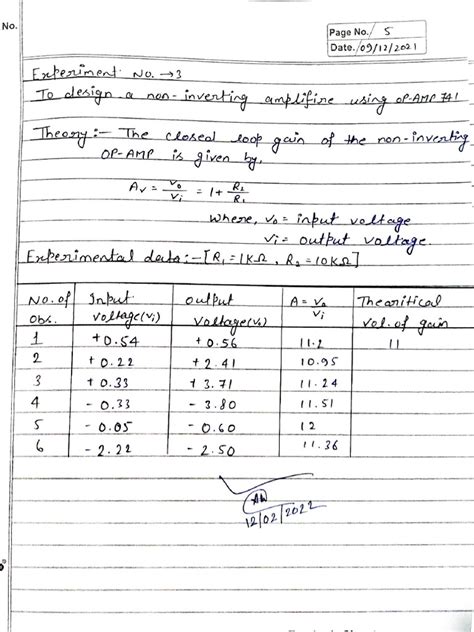 No.
Page No. 5
Date. 09/12/2021
Experiment No. → 3
To design a non-inverting amplifire using OP-AMP 741
Theory :- The closed loop gain of the non-inverting
OP-AMP is given by,
Av = Vo/Vi = 1 + R2/R1
where, Vo = input voltage
Vi = output voltage
Experimental data :- [R1 = 1KΩ, R2 = 10KΩ]
No. of Obs. Input voltage (Vi) output voltage (Vo) A = Vo/Vi Thearitical val. of gain
1 +0.54 +0.56 11.2 11
2 +0.22 +2.41 10.95
3 +0.33 +3.71 11.24
4 -0.33 -3.80 11.51
5 -0.05 -0.60 12
6 -2.22 -2.50 11.36
12/02/2022